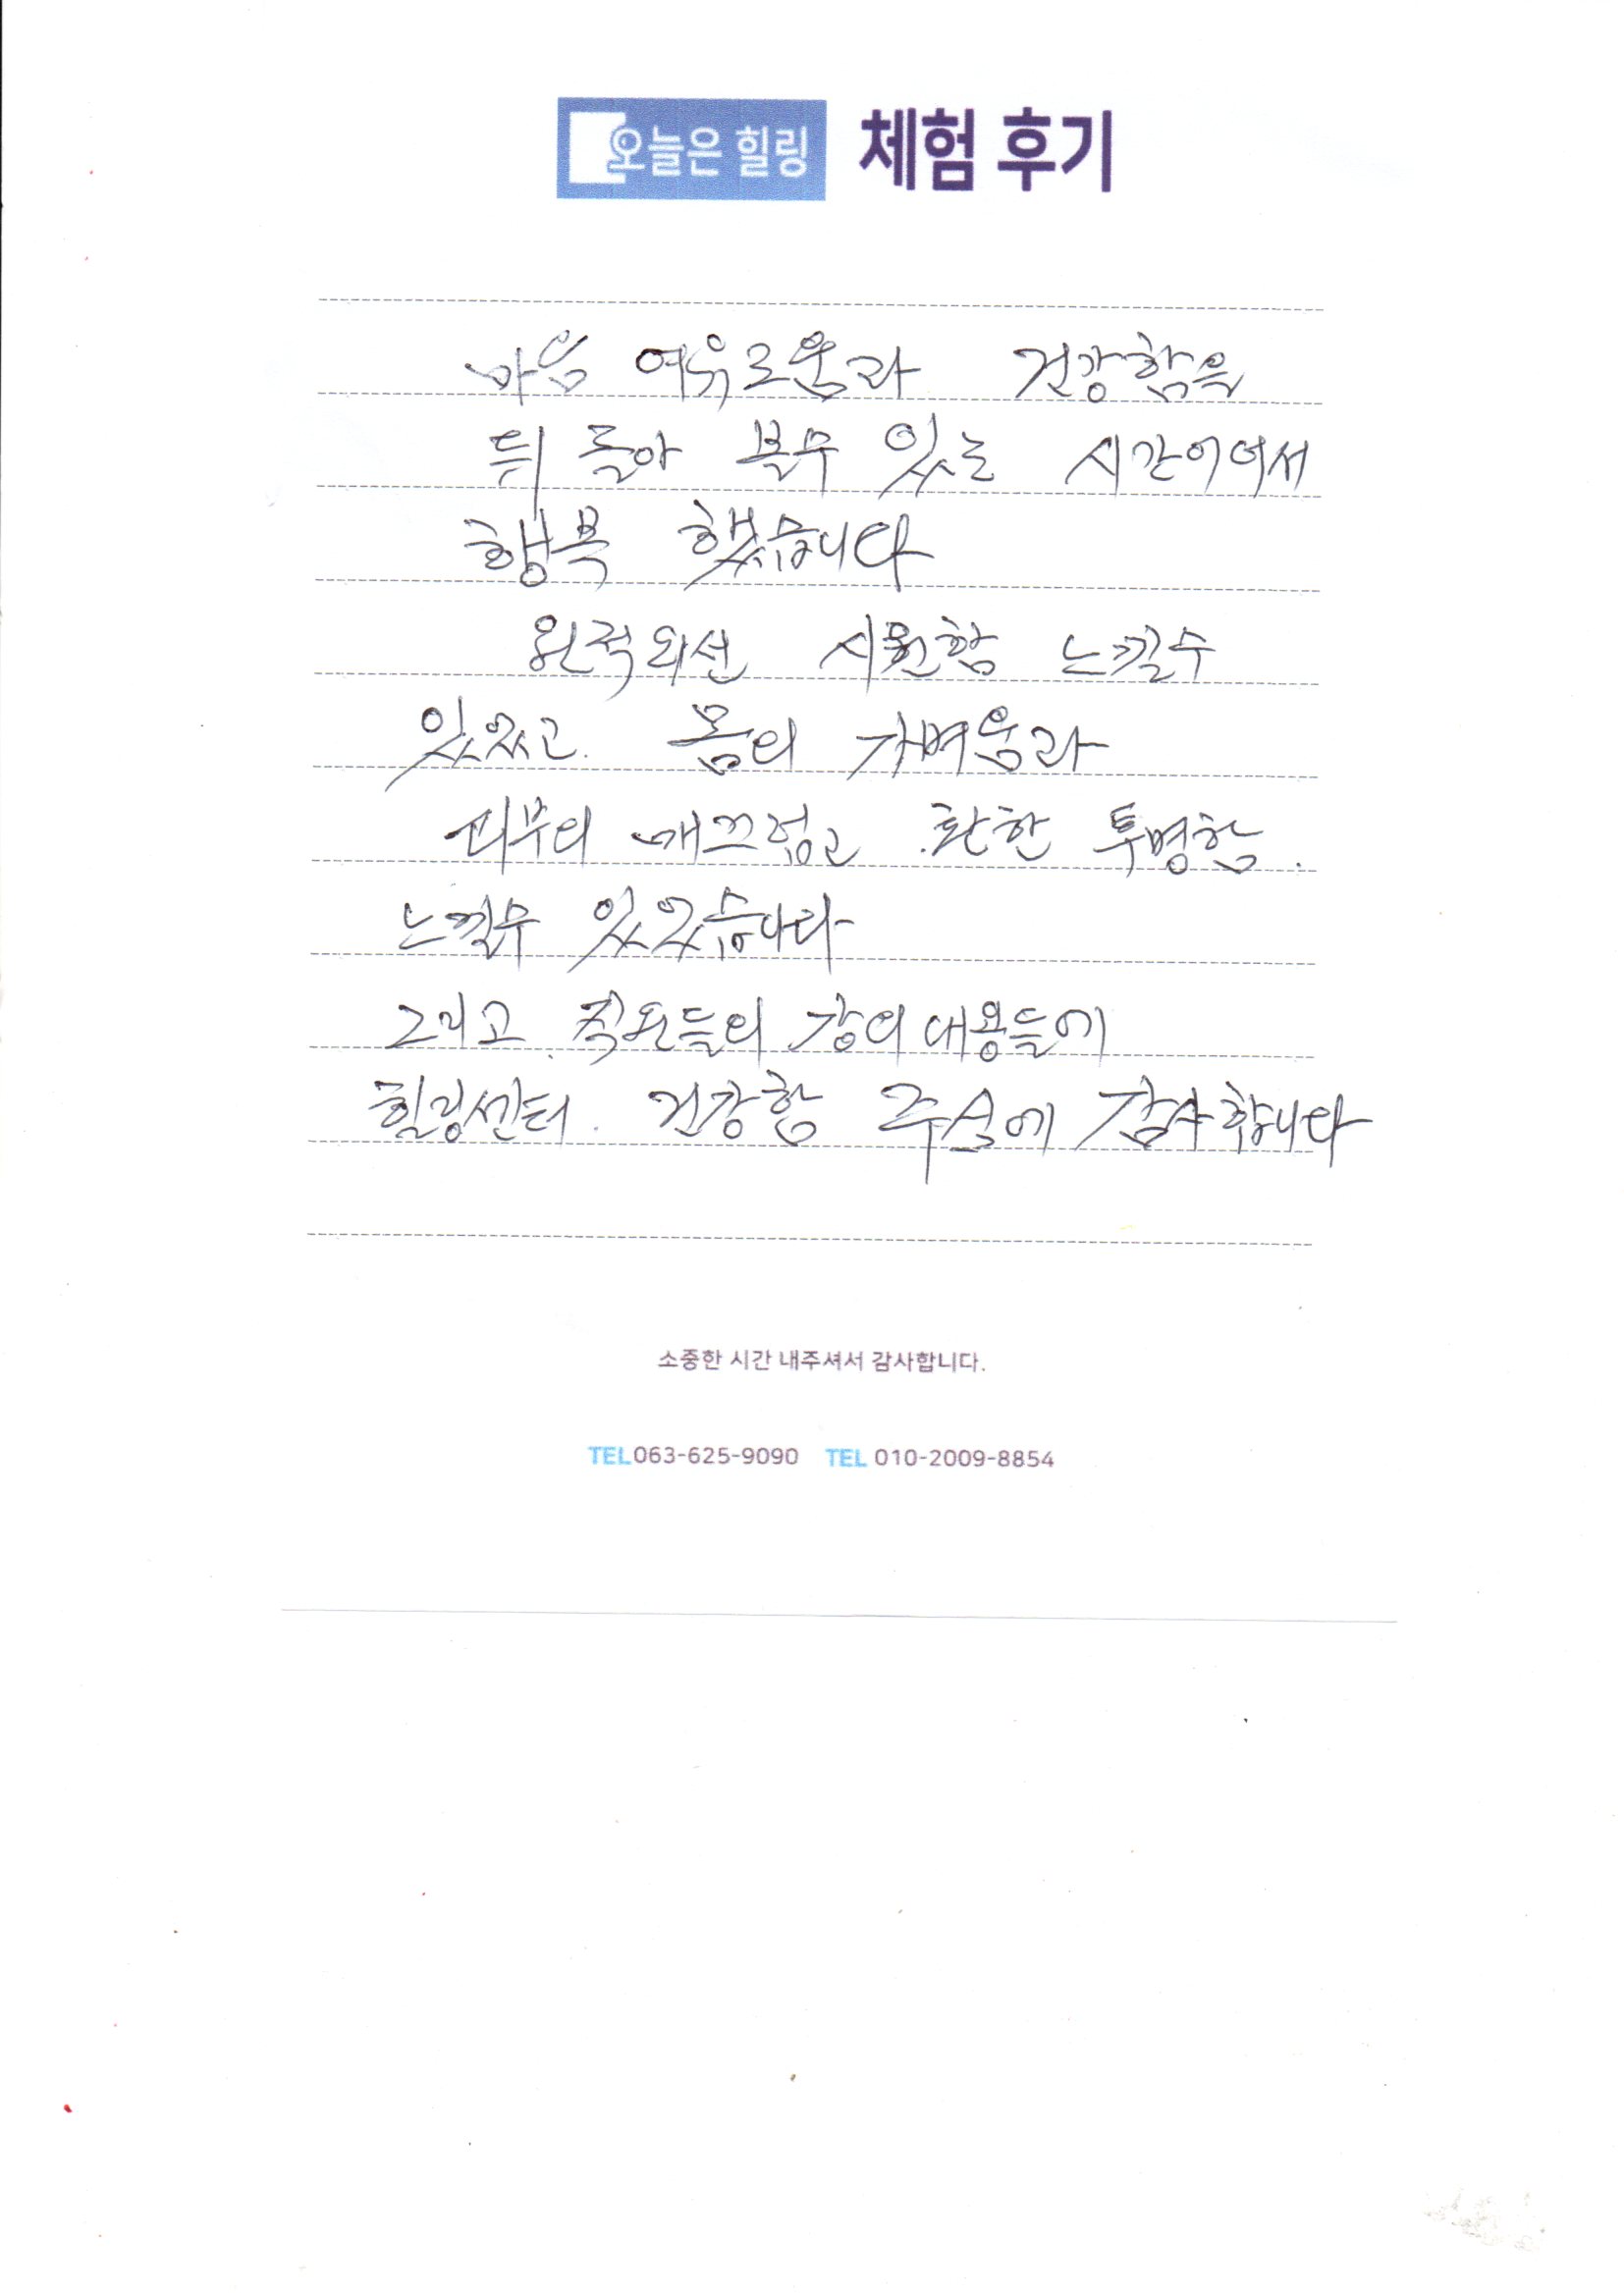 오늘은 힐링 체험 후기
마음 여유로움과 건강함을
뒤 돌아 볼수 있는 시간이여서
행복 했습니다
원적외선 시원함 느낄수
있었고. 몸의 가벼움과
피부의 매끄럽고 환한 투명함.
느낄수 있었습니다
그리고 직원들의 강의 내용들에
힐링센터. 건강함 주심에 감사합니다
소중한 시간 내주셔서 감사합니다.
TEL 063-625-9090 TEL 010-2009-8854